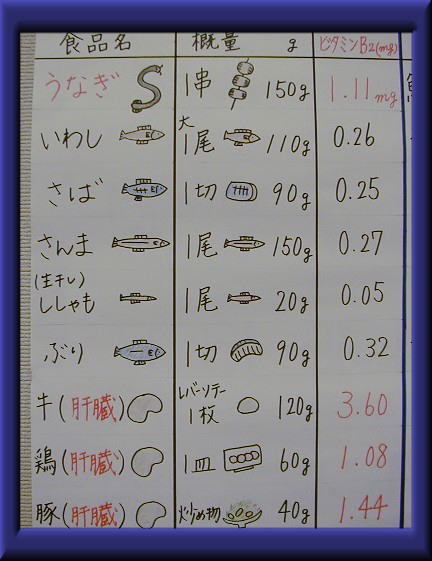 食品名 概量 g ビタミンB2(mg)
うなぎ 1串 150g 1.11mg
いわし 大1尾 110g 0.26
さば 1切 90g 0.25
さんま 1尾 150g 0.27
(生干し)
ししゃも 1尾 20g 0.05
ぶり 1切 90g 0.32
牛(肝臓) レバーソテー 1枚 120g 3.60
鶏(肝臓) 1皿 60g 1.08
豚(肝臓) 炒め物 40g 1.44